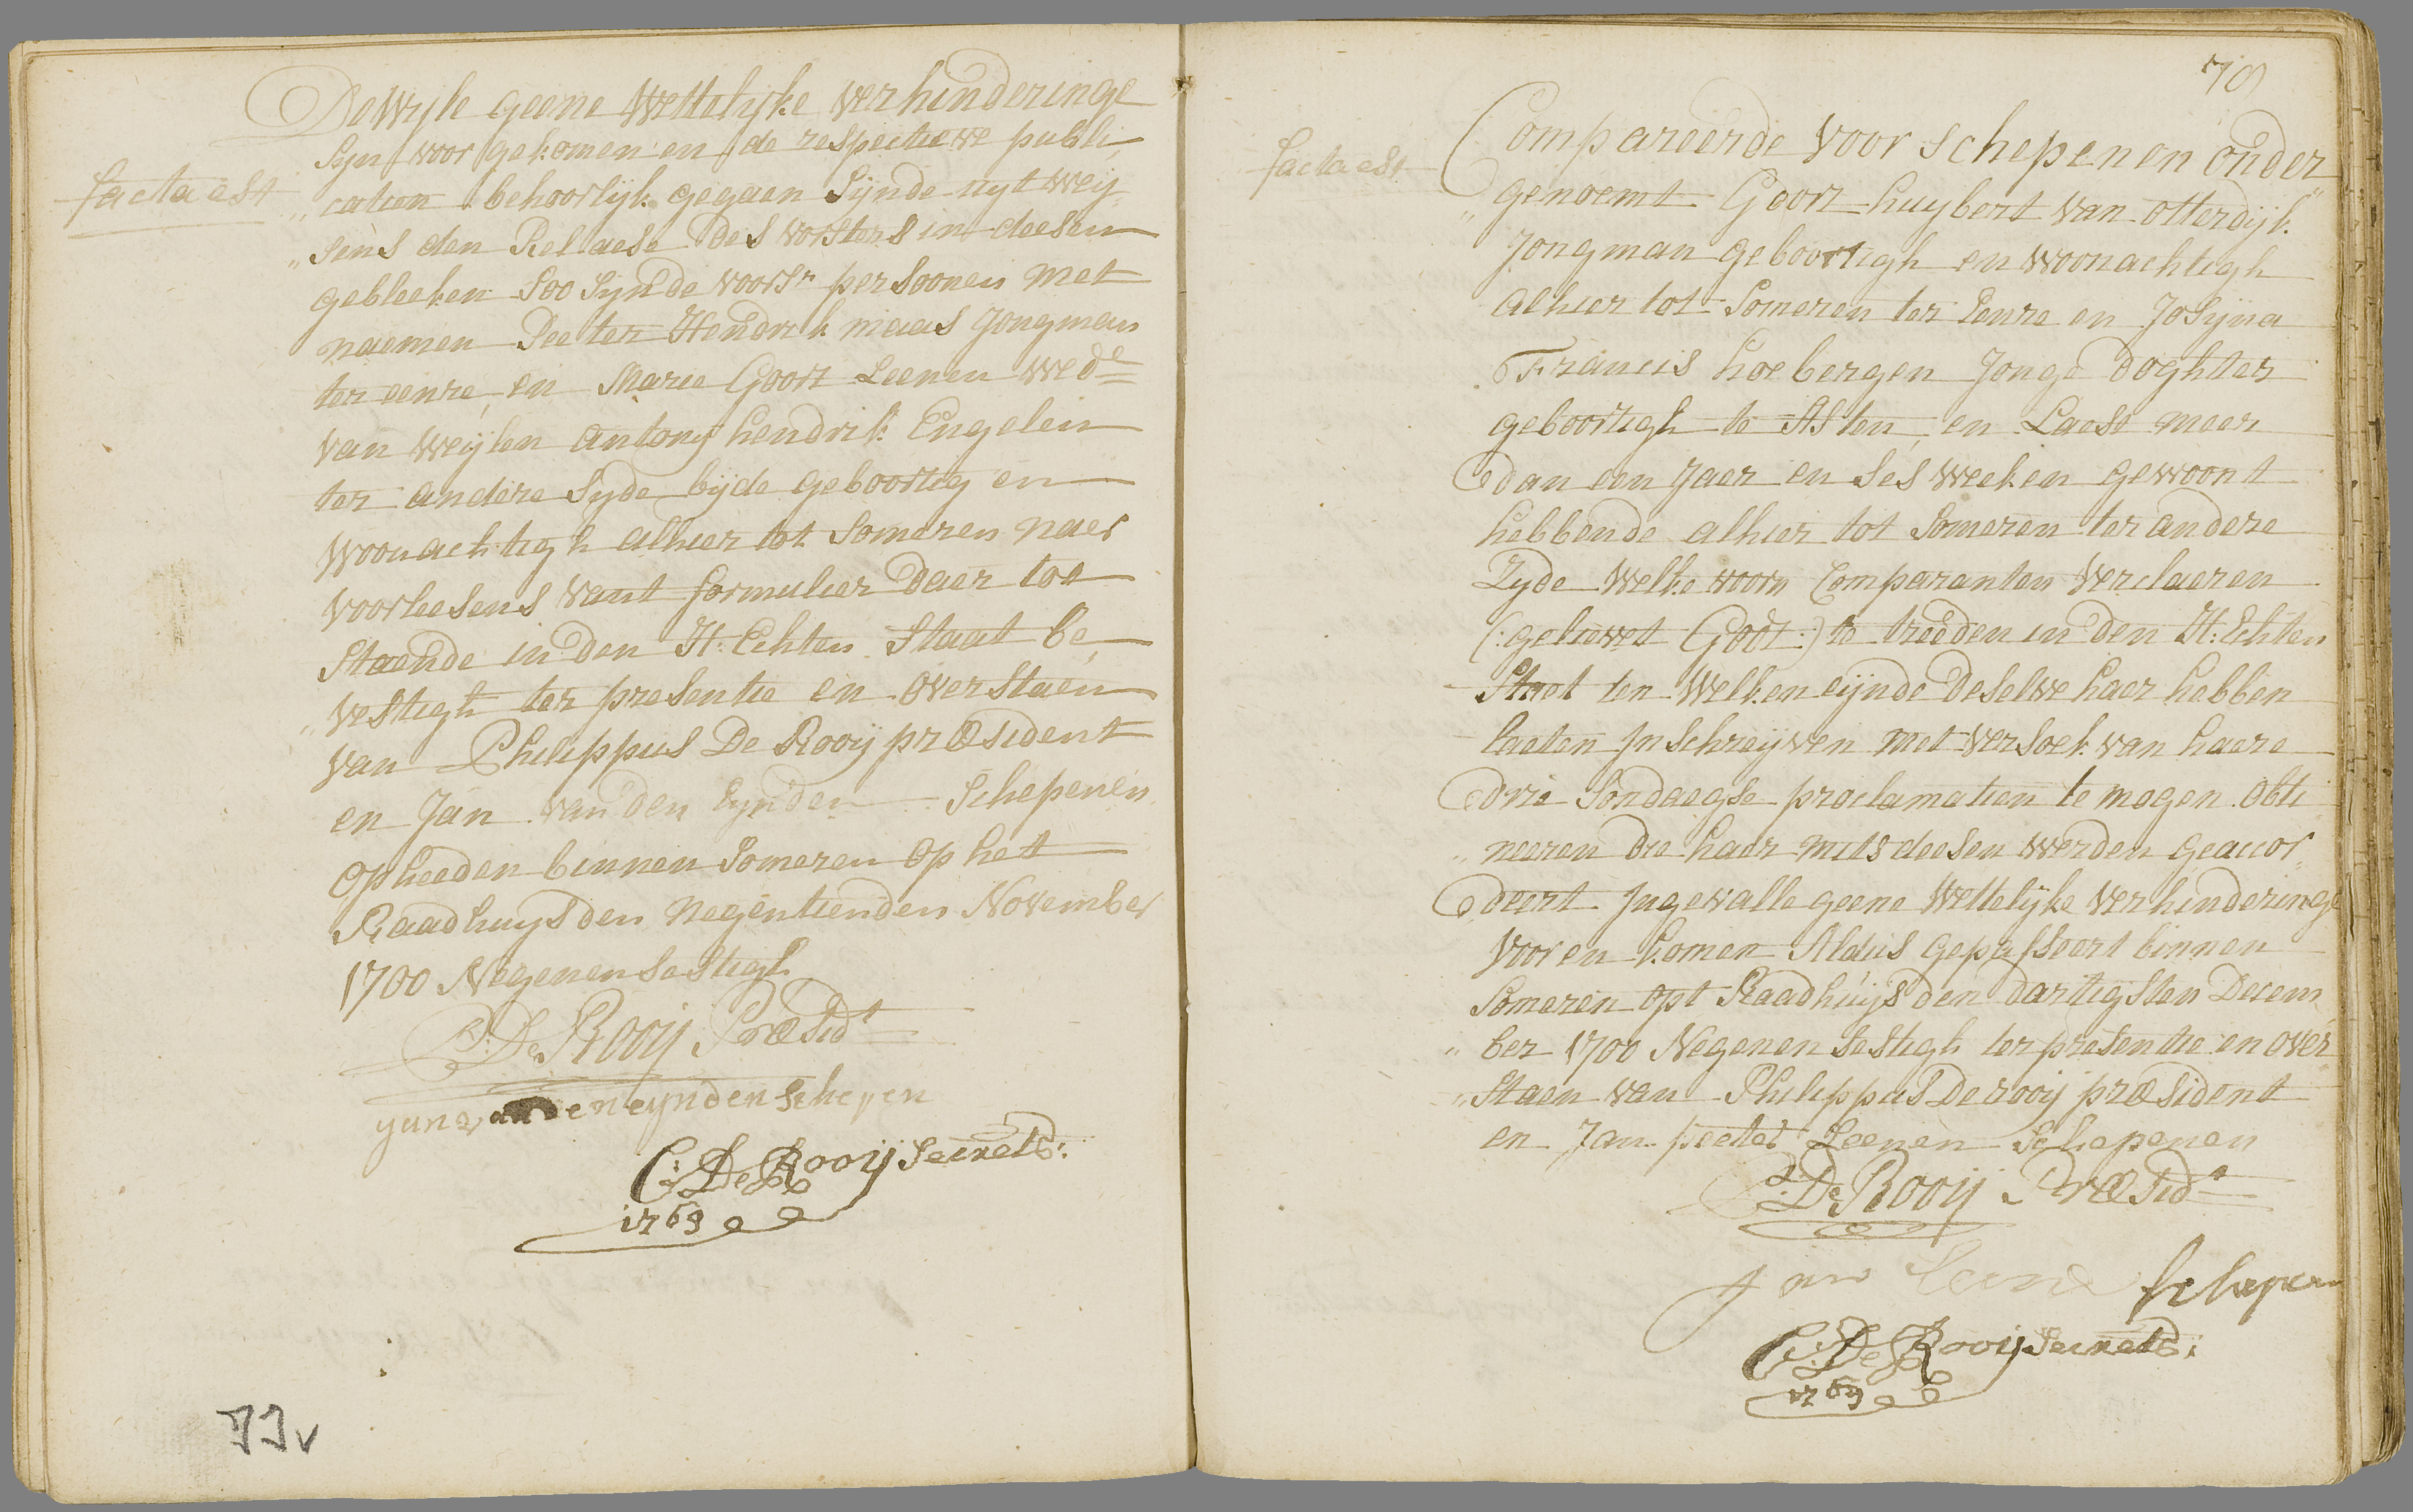 Dewyle geene Wettelijke verhinderinge
Syn voor gekomen en de respective publi,
factaest
„ catien behoorlyk gegaen Sijnde uyt wey
„ sens den Relaese des vorsters in deesen
gebleeken Soo Synde voorsr. persoonen met
naemen Peeter Hendrik maas Jongman
ter eenre, en Marie Goort Leenen Wede
van Weylen Antony hendrik Engelen
ter andere Syde byde geboortig en
Woonachtigh alhier tot Someren naer
voorleesens vant formulier daer toe
Staende in den H: Echten Staat be,
„ vestigh ter presentie en overstaen
van Philippus De Rooij præsident
en Jan van den Eynden Schepenen
Op heeden binnen Someren op het
Raadhuys den negentienden November
1700 Negenensestigh
P: De Rooij Præsidt
yan van den eynden schepen
C: De Rooij Secrets:
1769
77v
78
Compareerde voor schepenen onder
factaest
„ genoemt Goort huybert van otterdijk
Jongman geboortigh en woonachtigh
alhier tot Someren ter Eenre en Josyna
Francis hoebergen Jonge doghter
geboortigh te Asten, en Laest meer
dan een Jaer en ses weeken gewoont
hebbende alhier tot Someren ter andere
Zyde Welke voorn Comparanten verclaeren
(: gelievet Godt :) te treeden in den H: Echten
Staet ten Welken eijnde deselve haer hebben
laeten Jnschreijven met versoek van haere
drie Sondaegse proclamatien te mogen obti
„ neeren die haer mits deesen werden geaccor
deert Jngevalle geene Wettelyke verhinderinge
Vooren komen Aldus gepasseert binnen
Someren opt Raadhuys den dartigsten Decem
„ ber 1700 Negenen sestigh ter presentie en over
„ Staen van Philippus De rooij præsident
en Jan peeter Leenen Schepenen
P: De Rooij Præsidt
Jan Leene schepen
C: De Rooij Secrets:
1769